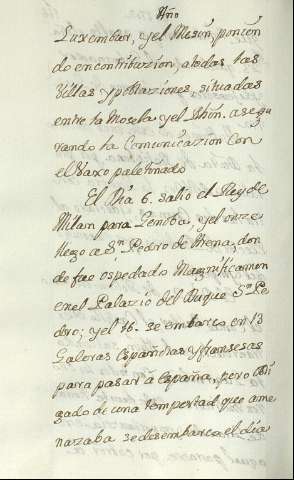 Año
Luxembur, y el Mesin, ponien
do en contribuzion, a todas las
Villas y poblaziones, situadas
entre la Mosela y el Rhin. asegu
rando la Comunicazion con
el Vaxo palatinado
El Dia 6. salio el Rey de
Milan para Genoba, y el onze
llego a Sn. Pedro de Arena, don
de fue ospedado Magnificamen
en el Palazio del Duque Sn. Pe
dro; y el 16. se embarco en 13
Galeras Españolas y fransesas
para pasar a España, pero obli
gado de una tempestad que ame
nazaba se desembarco el dia